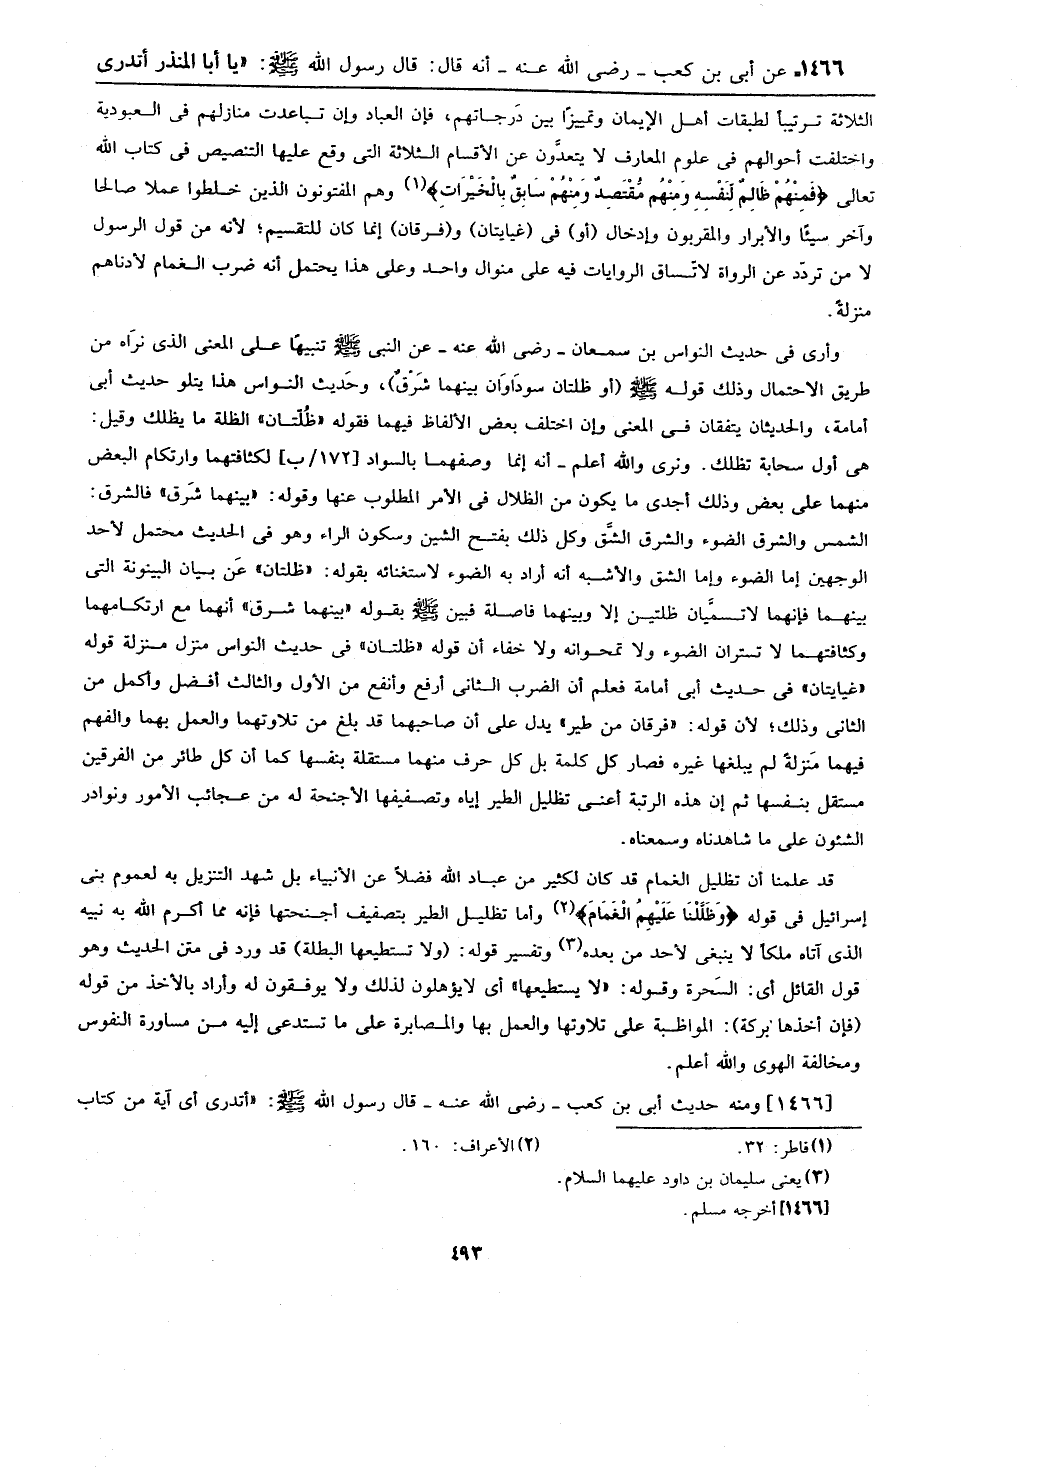 ١٤٦٦ـ عن أبى بن كعب ـ رضى الله عنه ـ أنه قال: قال رسول الله ﷺ: «يا أبا المنذر أتدرى
الثلاثة ترتيباً لطبقات أهل الإيمان وتميزًا بين دَرجاتهم، فإن العباد وإن تباعدت منازلهم فى العبودية
واختلفت أحوالهم فى علوم المعارف لا يتعدَّون عن الأقسام الثلاثة التى وقع عليها التنصيص فى كتاب الله
تعالى ﴿فَمِنْهُمْ ظَالِمٌ لِّنَفْسِهِ وَمِنْهُم مُّقْتَصِدٌ وَمِنْهُمْ سَابِقٌ بِالْخَيْرَاتِ﴾(١) وهم المفتونون الذين خلطوا عملا صالحا
وآخر سيئًا والأبرار والمقربون وإدخال (أو) فى (غيايتان) و(فرقان) إنما كان للتقسيم؛ لأنه من قول الرسول
لا من تردّد عن الرواة لاتّساق الروايات فيه على منوال واحد وعلى هذا يحتمل أنه ضرب الغمام لأدناهم
منزلةً.
وأرى فى حديث النواس بن سمعان ـ رضى الله عنه ـ عن النبى ﷺ تنبيهًا على المعنى الذى نرَاه من
طريق الاحتمال وذلك قوله ﷺ (أو ظلتان سودَاوَان بينهما شَرْقٌ)، وحَديث النواس هذا يتلو حديث أبى
أمامة، والحديثان يتفقان فى المعنى وإن اختلف بعض الألفاظ فيهما فقوله «ظُلّتان» الظلة ما يظلك وقيل:
هى أول سحابة تظلك. ونرى والله أعلم ـ أنه إنما وصفهما بالسواد [١٧٢/ب] لكثافتهما وارتكام البعض
منهما على بعض وذلك أجدى ما يكون من الظلال فى الأمر المطلوب عنها وقوله: «بينهما شَرق» فالشرق:
الشمس والشرق الضوء والشرق الشَّق وكل ذلك بفتح الشين وسكون الراء وهو فى الحديث محتمل لأحد
الوجهين إما الضوء وإما الشق والأشبه أنه أراد به الضوء لاستغنائه بقوله: «ظلتان» عَن بيان البينونة التى
بينهما فإنهما لاتسمَّيان ظلتين إلا وبينهما فاصلة فبين ﷺ بقوله «بينهما شرق» أنهما مع ارتكامهما
وكثافتهما لا تستران الضوء ولا تمحوانه ولا خفاء أن قوله «ظلتان» فى حديث النواس منزل منزلة قوله
«غيايتان» فى حديث أبى أمامة فعلم أن الضرب الثانى أرفع وأنفع من الأول والثالث أفضل وأكمل من
الثانى وذلك؛ لأن قوله: «فرقان من طير» يدل على أن صاحبهما قد بلغ من تلاوتهما والعمل بهما والفهم
فيهما مَنزلةً لم يبلغها غيره فصار كل كلمة بل كل حرف منهما مستقلة بنفسها كما أن كل طائر من الفرقين
مستقل بنفسها ثم إن هذه الرتبة أعنى تظليل الطير إياه وتصفيفها الأجنحة له من عجائب الأمور ونوادر
الشئون على ما شاهدناه وسمعناه.
قد علمنا أن تظليل الغمام قد كان لكثير من عباد الله فضلاً عن الأنبياء بل شهد التنزيل به لعموم بنى
إسرائيل فى قوله ﴿وَظَلَّلْنَا عَلَيْهِمُ الْغَمَامَ﴾(٢) وأما تظليل الطير بتصفيف أجنحتها فإنه مما أكرم الله به نبيه
الذى آتاه ملكاً لا ينبغى لأحد من بعده(٣) وتفسير قوله: (ولا تستطيعها البطلة) قد ورد فى متن الحديث وهو
قول القائل أى: السَحرة وقوله: «لا يستطيعها» أى لايؤهلون لذلك ولا يوفقون له وأراد بالأخذ من قوله
(فإن أخذها بركة): المواظبة على تلاوتها والعمل بها والمصابرة على ما تستدعى إليه من مساورة النفوس
ومخالفة الهوى والله أعلم.
[١٤٦٦] ومنه حديث أبى بن كعب ـ رضى الله عنه ـ قال رسول الله ﷺ: «أتدرى أى آية من كتاب
(١) فاطر: ٣٢. (٢) الأعراف: ١٦٠.
(٣) يعنى سليمان بن داود عليهما السلام.
[١٤٦٦] أخرجه مسلم.
٤٩٣